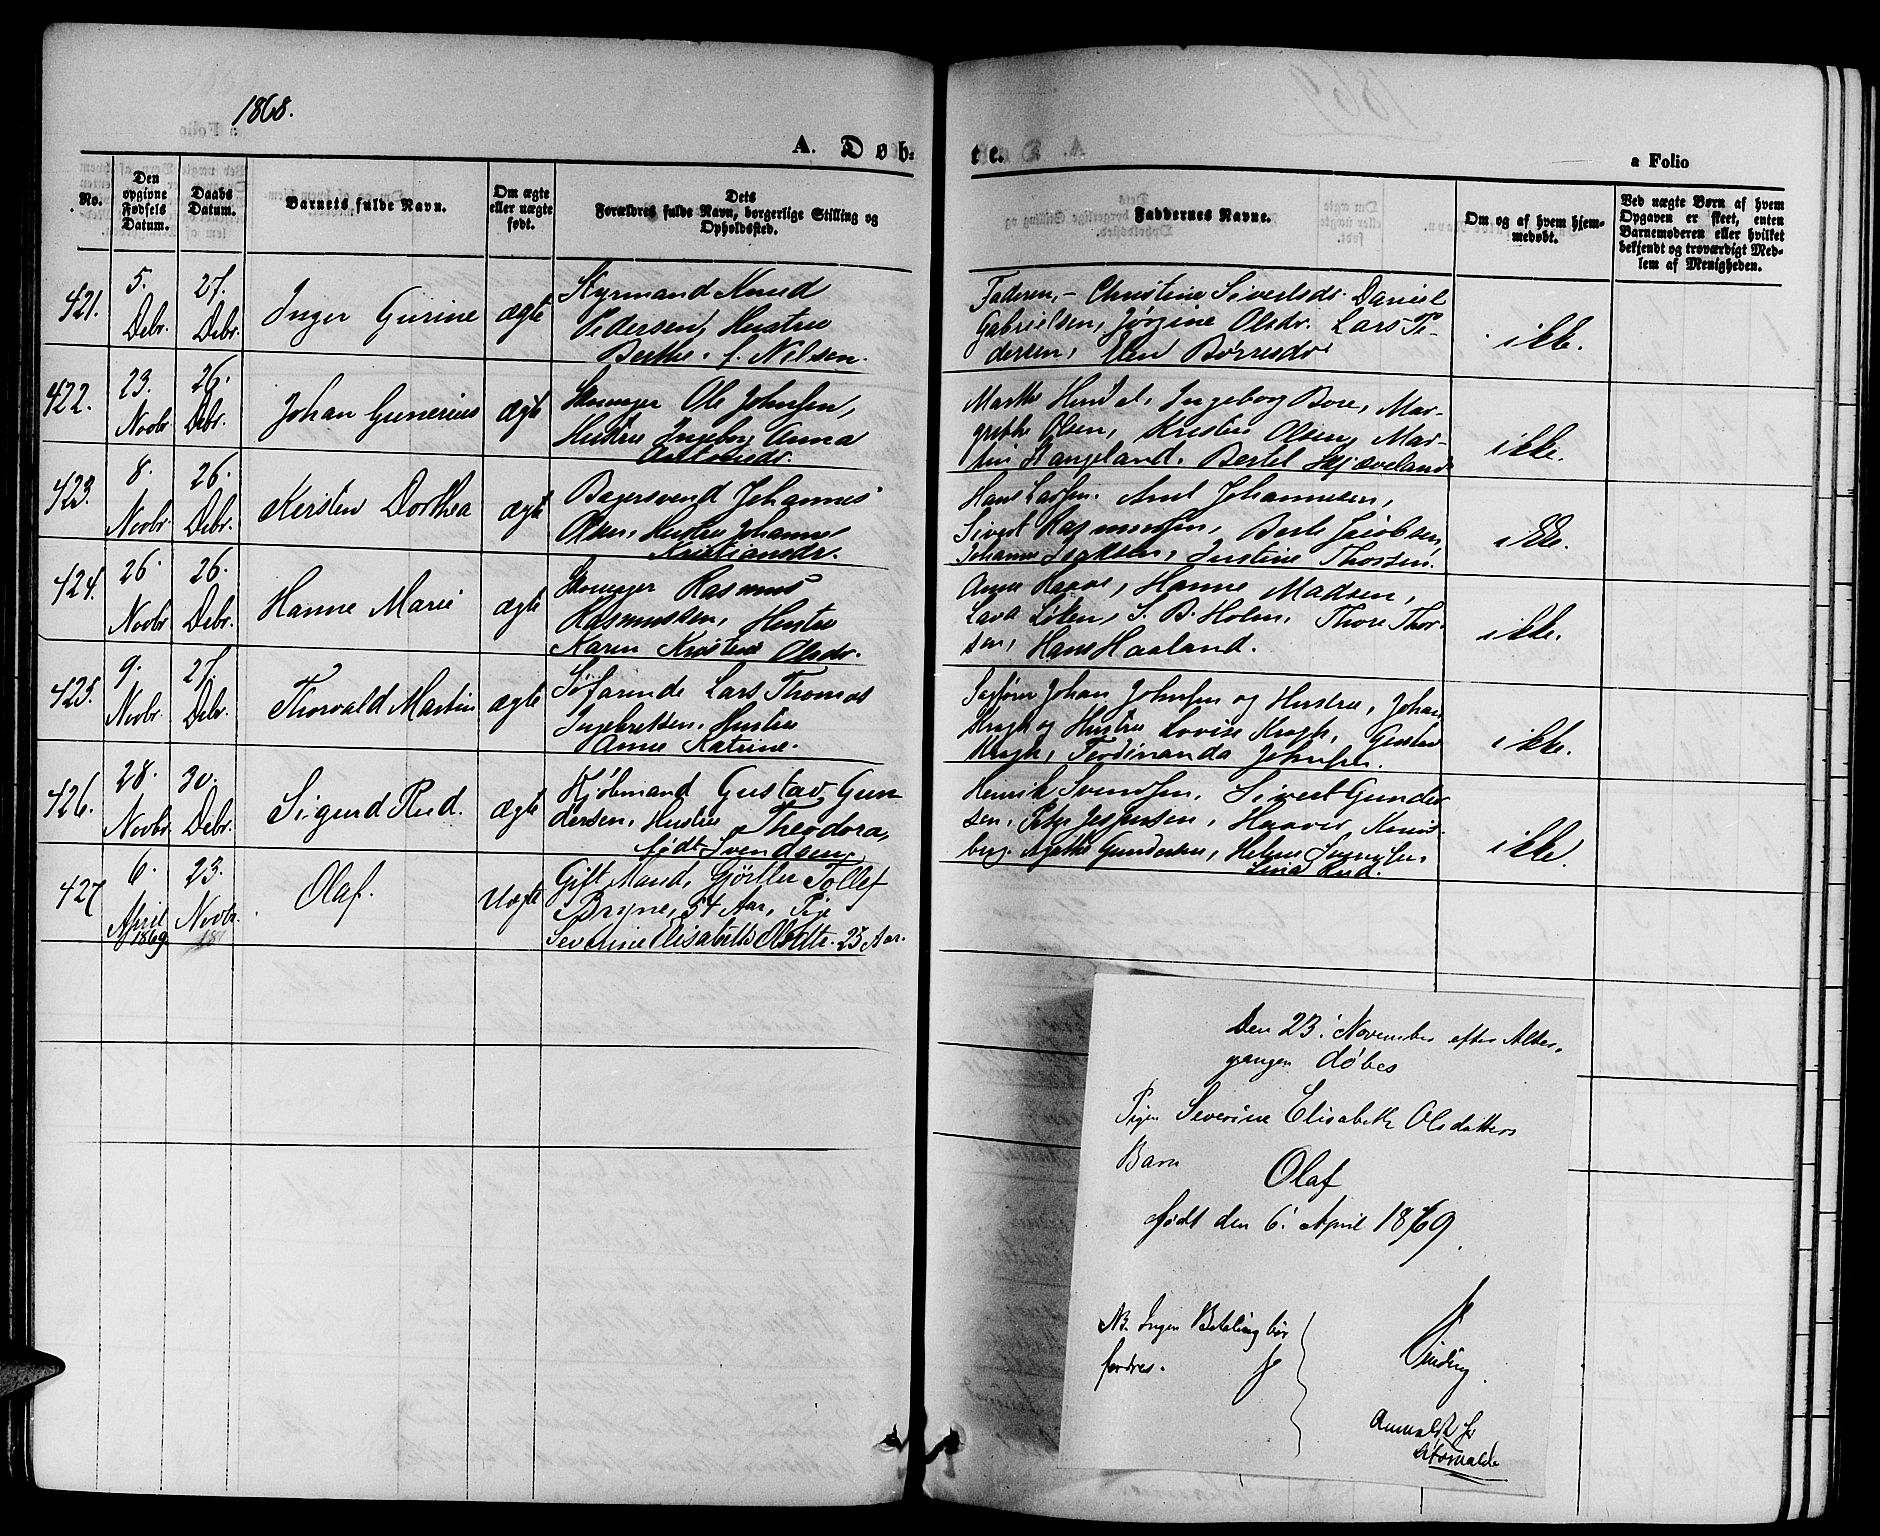 1868.
A. Døb-
te.
a Folio
No.
Den opgivne Fødsels Datum.
Daabs Datum.
Barnets fulde Navn.
Om ægte eller uægte født.
Dets Forældres fulde Navn, borgerlige Stilling og Opholdssted.
Faddernes Navne.
Om og af hvem hjemmedøbt.
Ved uægte Børn af hvem Opgaven er skeet, enten Barnemoderen eller hvilket bekjendt og troværdigt Medlem af Menigheden.
421.
5. Debr.
27. Debr.
Inger Gurine
ægte
Styrmand Knud
Pedersen, Hustru
Berthe f. Nilsen.
Faderen, - Christine Sivertsdr. Daniel
Gabrielsen, Jørgine Olsdr. Lars Pe-
dersen, Børresdr
ikke.
422.
23. Novbr
26. Debr.
Johan Gunerius
ægte
Ole Johnsen,
Hustru Ingeborg Anna
Marthe Ingeborg Bore, Mar-
grethe Olsen, Kristen Olsen, Mar-
tin Stangeland. Bertel Skjæveland
ikke.
423.
8. Novbr
26. Debr.
Kirsten Dorthea
ægte
Bagersvend Johannes
Olsen, Hustru Johanne
Kristiansdr.
Hans Larsen. Johannesen,
Sivert Rasmussen, Berte Jacobsen,
Johanne Isaksen, Justine Thorsen.
ikke.
424.
26. Novbr
26. Debr.
Hanne Marie
ægte
Rasmus
Rasmussen, Hustru
Karen Kristine Olsdr.
Anne Hanne Madsen,
S. B. Holm, Thore Thor-
sen, Hans Haaland.
ikke.
425.
9. Novbr.
27. Debr.
Thorvald Martin
ægte
Søfarende Lars Thomas
Ingebretsen. Hustru
Anne Katrine.
Johan Johnsen og Hustru, Johan
Krogh og Hustru Lovise Krogh, Gustav
Krogh, Ferdinanda Johnsen.
ikke.
426.
28. Novbr
30. Debr.
Sigurd Rud.
ægte
Kjøbmand Gustav Gun
dersen, Hustru Theodora,
født Svendsen,
Henrik Svendsen, Sivert Gunder
sen, Jespersen,
Agathe Gundersen,
Rud.
ikke.
427
6. April 1869
23. Novbr.
Olaf.
Uægte
Gift Mand, Gjørtler Tollef
Bryne, 54 Aar, Pige
Severine Elisabeth Olsdtr. 25 Aar.
Den 23. November efter Alter-
gangen døbes
Pigen Severine Elisabeth Olsdatters
Barn
Olaf
født den 6. April 1869.
NB. Ingen Betaling bør
fordres.